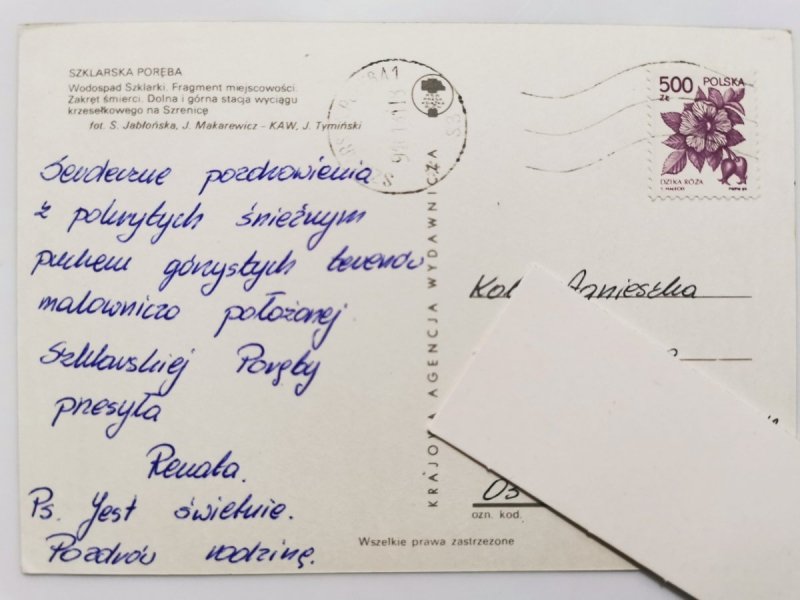 SZKLARSKA PORĘBA
Wodospad Szklarki. Fragment miejscowości.
Zakręt śmierci. Dolna i górna stacja wyciągu
krzesełkowego na Szrenicę
fot. S. Jabłońska, J. Makarewicz – KAW, J. Tymiński
Serdeczne pozdrowienia
z pokrytych śnieżnym
puchem górzystych terenów
malowniczo położonej
Szklarskiej Poręby
przesyła
Renata.
Ps. Jest świetnie.
Pozdrów rodzinę.
KRAJOWA AGENCJA WYDAWNICZA
Wszelkie prawa zastrzeżone
500 ZŁ POLSKA
DZIKA RÓŻA
Agnieszka
ozn. kod.